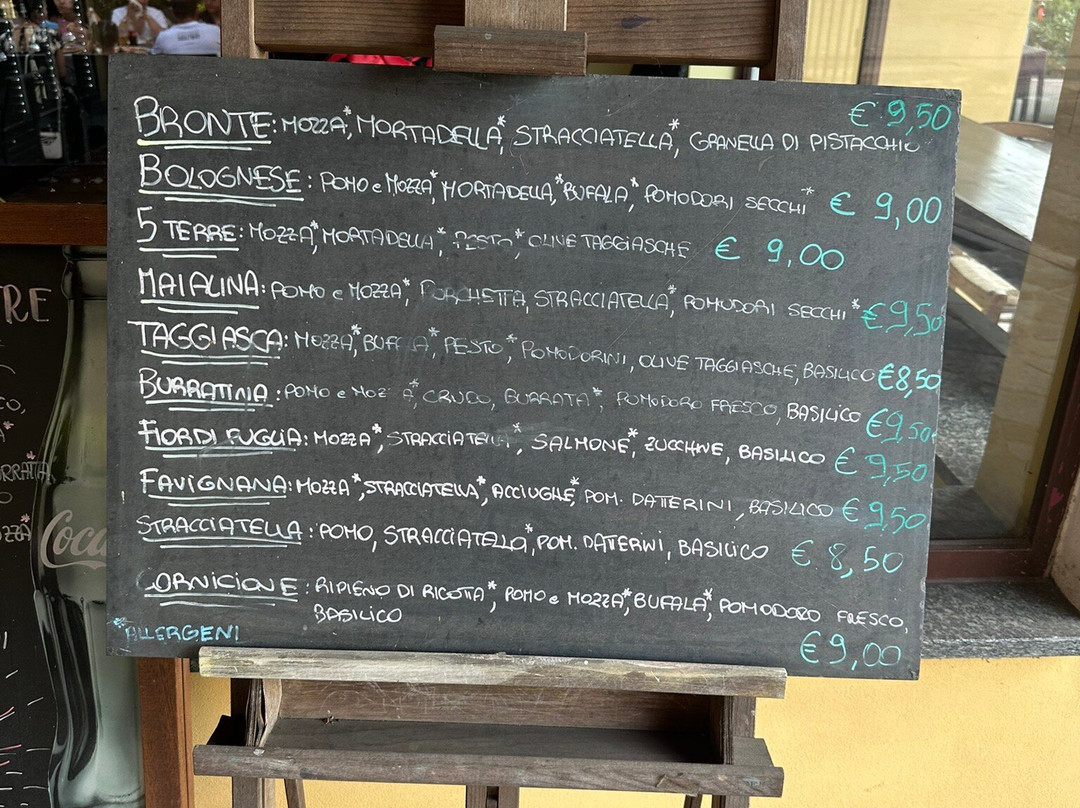 BRONTE: MOZZA*, MORTADELLA*, STRACCIATELLA*, GRANELLA DI PISTACCHIO € 9,50
BOLOGNESE: POMO e MOZZA*, MORTADELLA*, BUFALA*, POMODORI SECCHI* € 9,00
5 TERRE: MOZZA*, MORTADELLA*, PESTO*, OLIVE TAGGIASCHE € 9,00
MAIALINA: POMO e MOZZA*, PORCHETTA, STRACCIATELLA*, POMODORI SECCHI* €9,50
TAGGIASCA: MOZZA*, BUFALA*, PESTO*, POMODORINI, OLIVE TAGGIASCHE, BASILICO €8,50
BURRATINA: POMO e MOZZA*, CRUDO, BURRATA*, POMODORO FRESCO, BASILICO €9,50
FIOR DI FUGLIA: MOZZA*, STRACCIATELLA*, SALMONE*, ZUCCHINE, BASILICO € 9,50
FAVIGNANA: MOZZA*, STRACCIATELLA*, ACCIUGHE*, POM. DATTERINI, BASILICO € 9,50
STRACCIATELLA: POMO, STRACCIATELLA*, POM. DATERINI, BASILICO € 8,50
CORNICIONE: RIPIENO DI RICOTTA*, POMO e MOZZA*, BUFALA*, POMODORO FRESCO,
BASILICO
*ALLERGENI
€9,00
RE
CO,
Coca